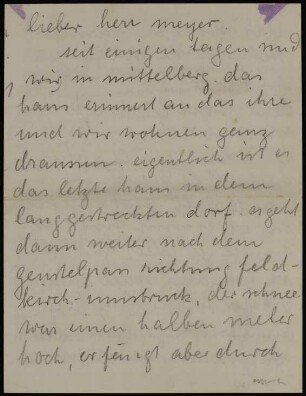 lieber herr meyer.
seit einigen tagen sind
wir in mittelberg. das
haus erinnert an das ihre
und wir wohnen ganz
draussen. eigentlich ist es
das letzte haus in dem
langgestreckten dorf. es geht
dann weiter nach dem
gentelpass richtung feld-
kirch-innsbruck. der schnee
war einen halben meter
hoch, er fängt aber durch